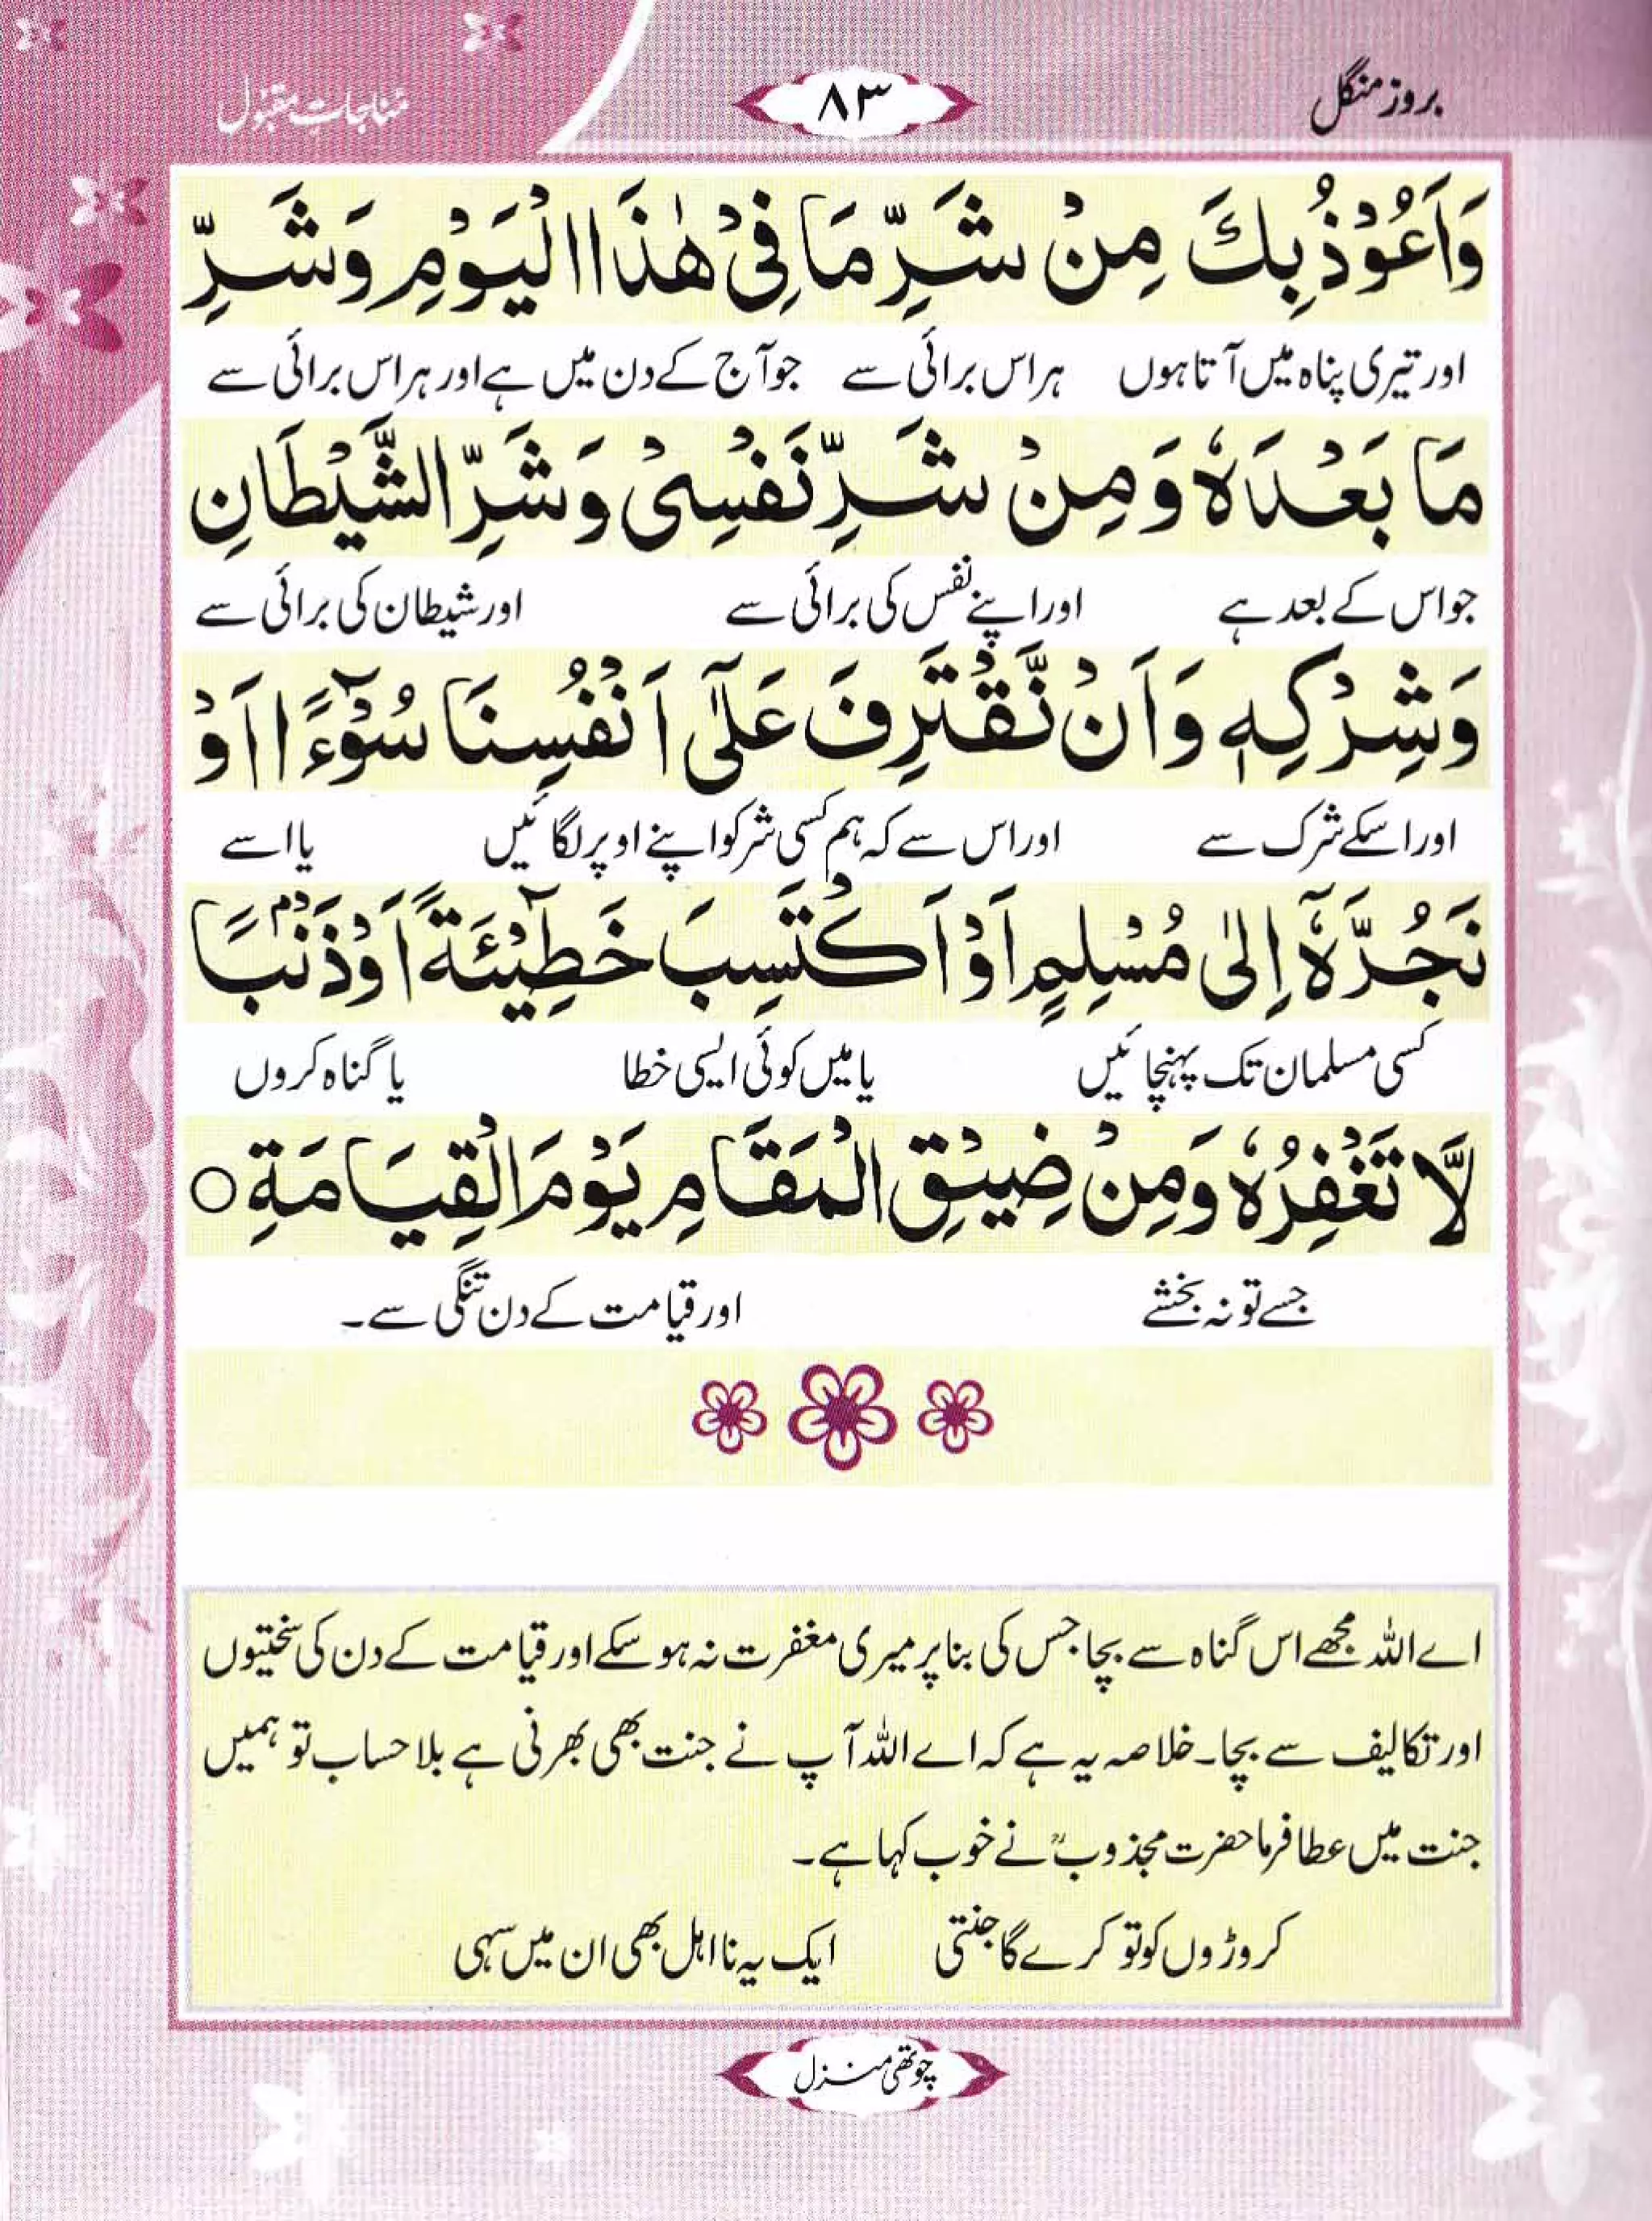 بروز منگل
۸۳
مُناجاتِ مقبُول
وَاَعُوْذُ بِكَ مِنْ شَرِّ مَا فِيْ هٰذَا الْيَوْمِ وَشَرِّ
اور تیری پناہ میں آتا ہوں ہر اس برائی سے جو آج کے دن میں ہے اور ہر اس برائی سے
مَا بَعْدَهٗ وَمِنْ شَرِّ نَفْسِيْ وَشَرِّ الشَّيْطَانِ
جو اس کے بعد ہے اور اپنے نفس کی برائی سے اور شیطان کی برائی سے
وَشِرْكِهٖ وَاَنْ نَّقْتَرِفَ عَلٰٓى اَنْفُسِنَا سُوْٓءًا اَوْ
اور اسکے شرک سے اور اس سے کہ ہم کسی شر کو اپنے اوپر لگائیں یا اسے
نَجُرَّهٗٓ اِلٰى مُسْلِمٍ اَوْ اَكْتَسِبَ خَطِيْٓئَةً اَوْ ذَنْۢبًا
کسی مسلمان تک پہنچائیں یا میں کوئی ایسی خطا یا گناہ کروں
لَّا تَغْفِرُهٗ وَمِنْ ضِيْقِ الْمَقَامِ يَوْمَ الْقِيَامَةِ ○
جسے تو نہ بخشے اور قیامت کے دن تنگی سے۔
اے اللہ مجھے اس گناہ سے بچا جس کی بنا پر میری مغفرت نہ ہو سکے اور قیامت کے دن کی سختیوں
اور تکالیف سے بچا۔ خلاصہ یہ ہے کہ اے اللہ آپ نے جنت بھی بھرنی ہے بلا حساب تو ہمیں
جنت میں عطا فرما حضرت مجذوبؒ نے خوب کہا ہے۔
کروڑوں کو تو کرے گا جنتی ایک یہ نا اہل بھی ان میں سہی
چوتھی منزل